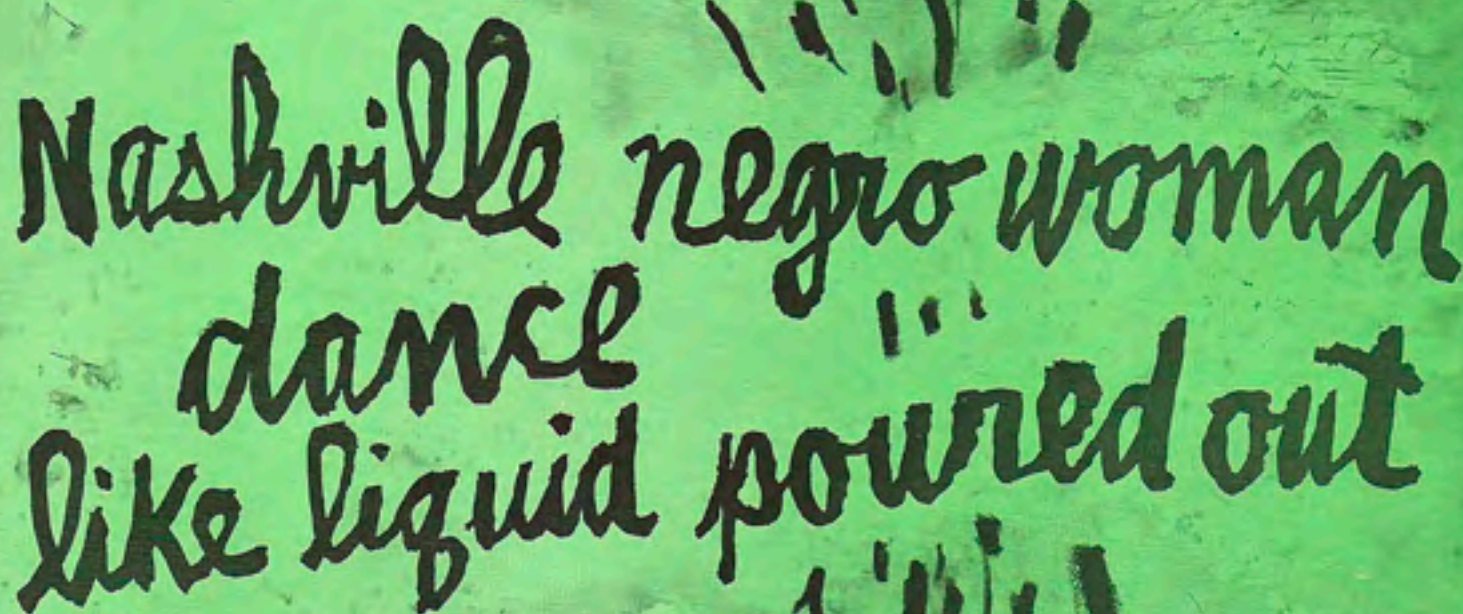 Nashville negro woman
dance
like liquid poured out